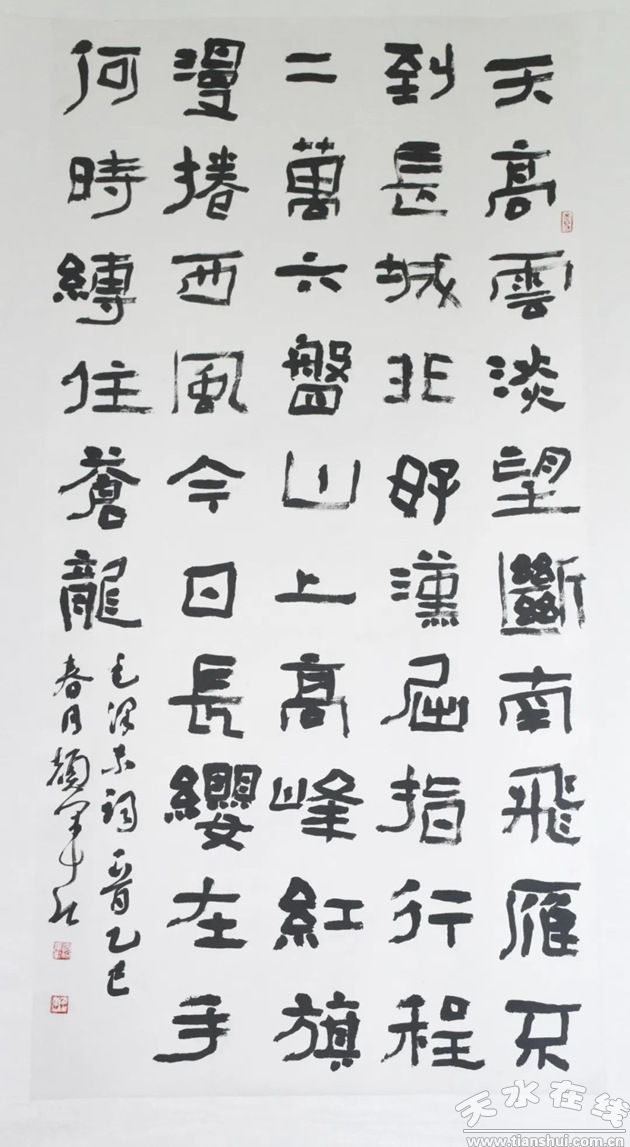 天高雲淡望斷南飛雁不
到長城非好漢屈指行程
二萬六盤山上高峰紅旗
漫捲西風今日長纓在手
何時縛住蒼龍
毛澤東詞一首乙巳
春月
天水在线
www.tianshui.com.cn